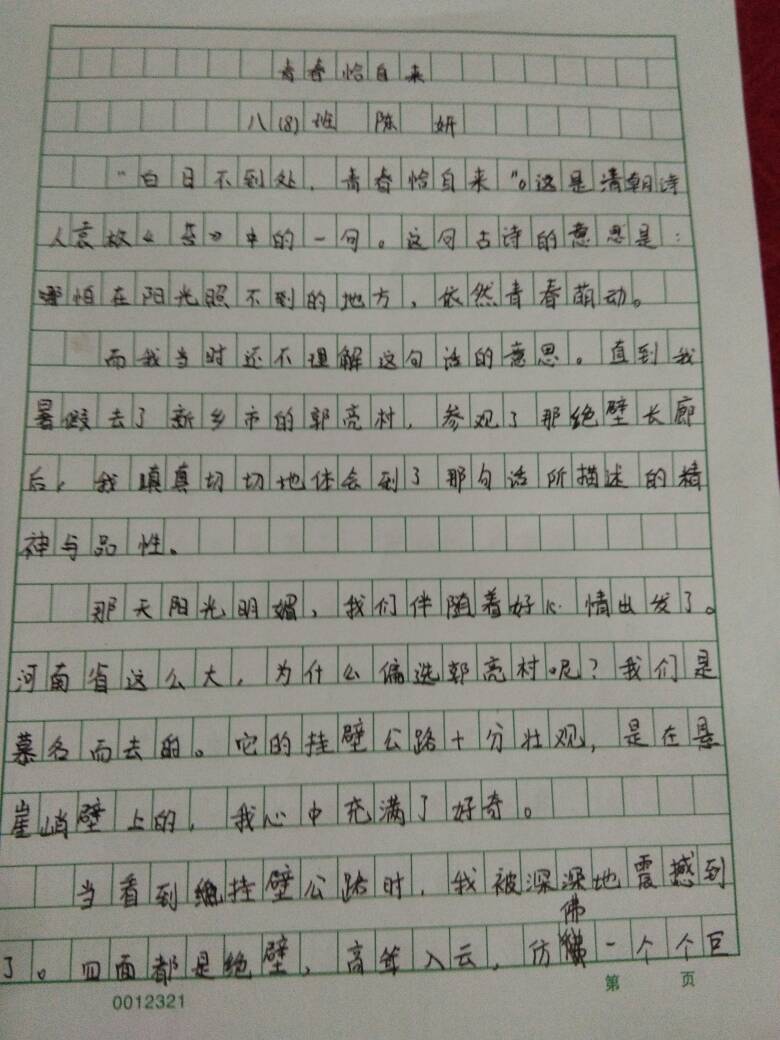 青春恰自来
八(8)班 陈妍
“白日不到处,青春恰自来”。这是清朝诗
人袁枚《苔》中的一句。这句古诗的意思是:
哪怕在阳光照不到的地方,依然青春萌动。
而我当时还不理解这句话的意思。直到我
暑假去了新乡市的郭亮村,参观了那绝壁长廊
后,我真真切切地体会到了那句话所描述的精
神与品性。
那天阳光明媚,我们伴随着好心情出发了。
河南省这么大,为什么偏选郭亮村呢?我们是
慕名而去的。它的挂壁公路十分壮观,是在悬
崖峭壁上的,我心中充满了好奇。
当看到挂壁公路时,我被深深地震撼到
了。四面都是绝壁,高耸入云,仿佛一个个巨
第 页
0012321